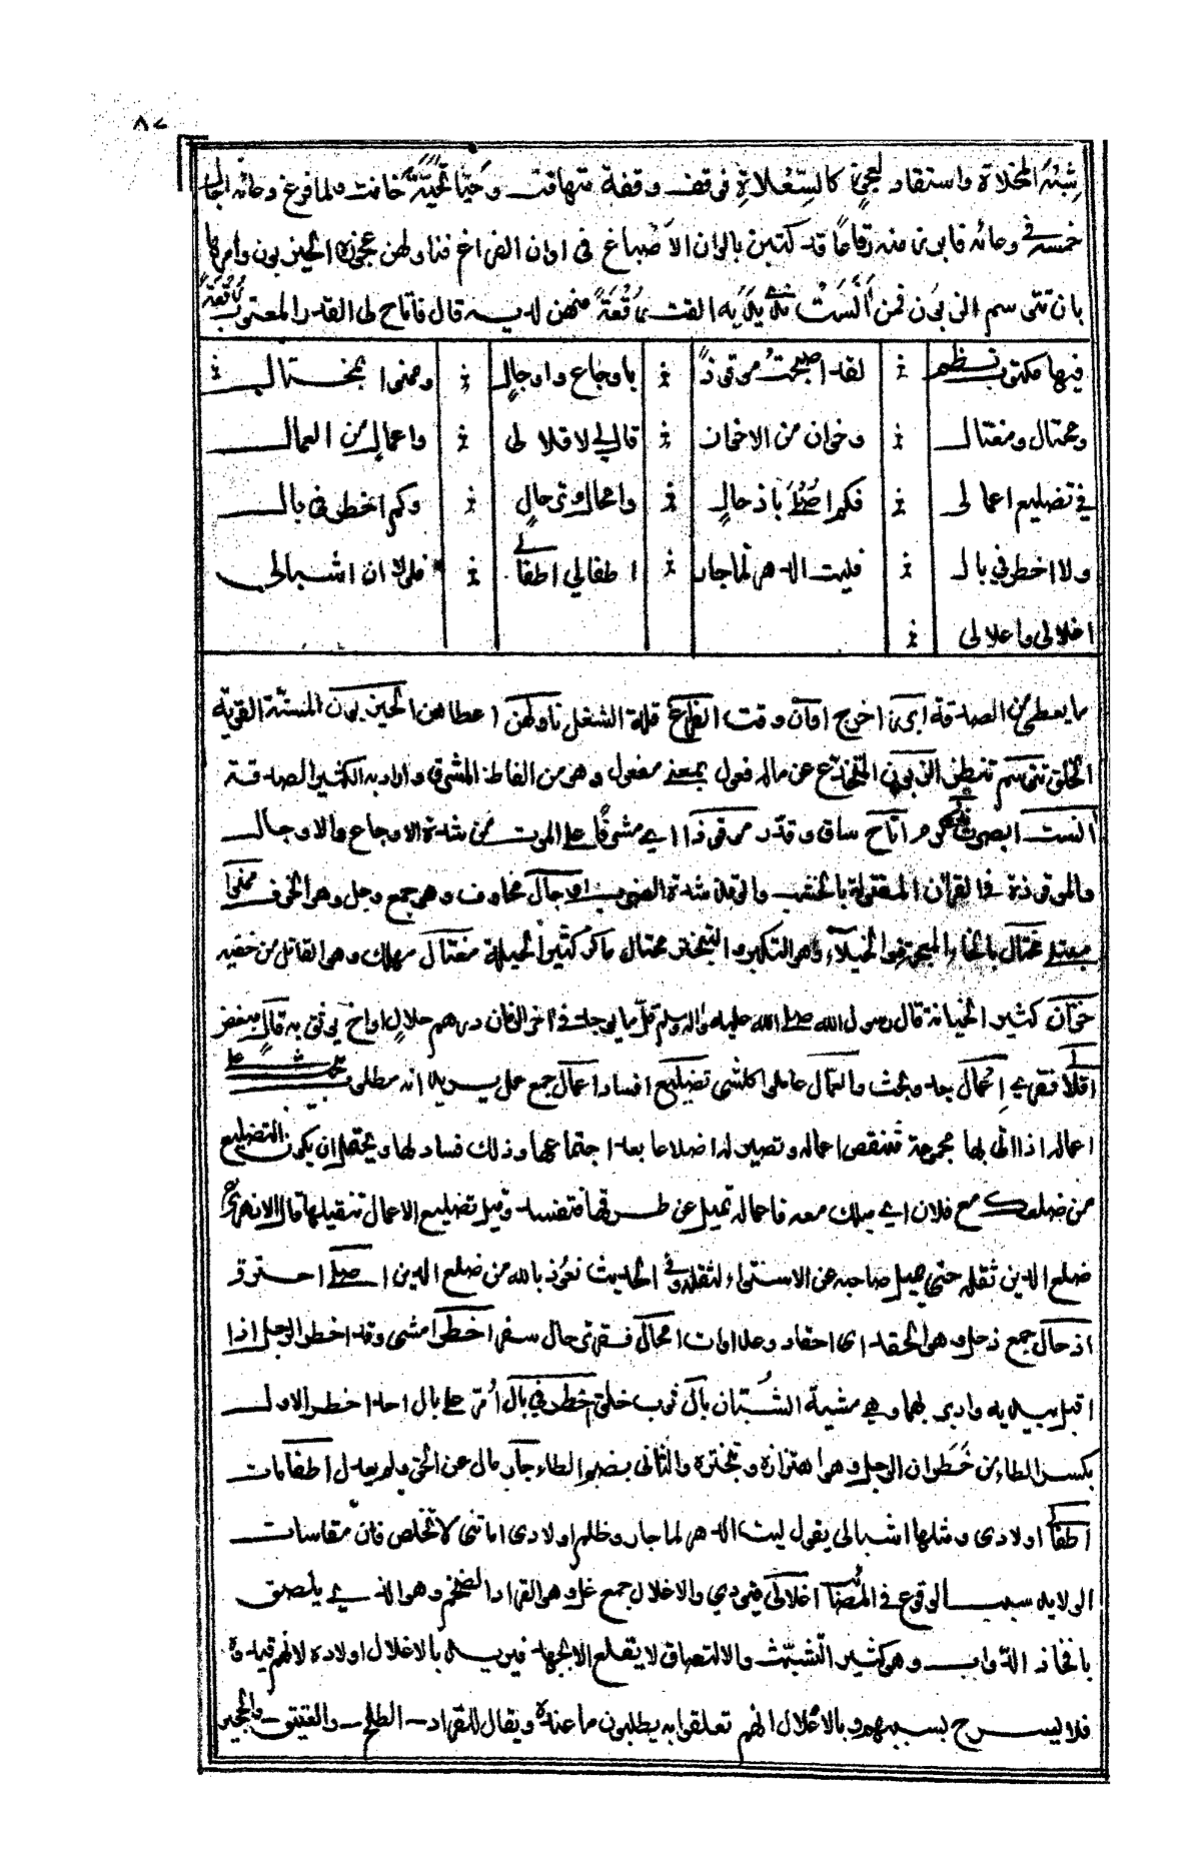 ٨٧
شبه المخلاة واستقاد لعجوز كالسعلاة فوقف وقفة متهافت وحيا تحيّة خافت ولما فرغ من دعائه اجال
خمسه في وعائه فابرز منه رقاعًا قد كتبن بالوان الاصْباغ فى اوان الفراغ فناولهن عجوزه الحيزبون وامرها
بان تتوسم الزبون فمن آنَسَتْ ندى يَدَيْه القت رُقْعَةً منهن لديه قال فاتاح لى القدر المعتوب رُقْعَةً
فيها مكتوب نظم لقد اصبحتُ موقوذًا باوجاع واوجالٍ وممنوا بمختال
ومحتال ومغتال وخوان من الاخوان قالٍ لى لاقلالى واعمال من العمال
في تضليع اعمالى فكم اصلى باذحالٍ وامحال وترحالٍ وكم اخطر فى بال
ولا اخطر في بال فليت الدهر لما جار اطفا لي اطفالي فلولا ان اشبالي
اغلالى واعلالى
ما يعطى من الصدقة ابرز اخرج اوان وقت الفراغ قلة الشغل ناولهن اعطاهن الحيزبون المسنّة القوية
الخلق تتوسم تنظر الزبون المنخدع عن ماله فعول بمعنى مفعول وهو من الفاظ المشرق واراد به الكثير الصدقة
آنست ابصرت ندى كرم اتاح ساق وقدّر موقوذا اي مشرفًا على الموت من شدة الاوجاع والاوجال
والموقوذة في القرآن المقتولة بالخشب والوقذ شدة الضرب اوجال مخاوف وهو جمع وجل وهو الخوف ممنوا
مبتلى مختال بالخاء المعجمة ذو الخيلاء وهو التكبر والتبختر محتال ماكر كثير الحيلة مغتال مهلك وهو القاتل من خفية
خوّان كثير الخيانة قال رسول الله صلى الله عليه واله وسلم قلّ ما يوجد في آخر الزمان درهم حلال او اخ يوثق به قالٍ مبغض
اقلالى فقري اعمال جد وبحث والعمال عاملوا كل شى تضليع افساد اعمال جمع عمل يريد انه مطلوب على
اعماله اذا اتى بها مجموعة تنقص اعماله وتصير له اضلاعا بعد اجتماعها وذلك فسادلها ويحتمل ان يكون التضليع
من ضلعك مع فلان اي ميلك معه فاعماله تميل عن طريقها فتفسد وقيل تضليع الاعمال تثقيلها قال الازهري
ضلع الدين ثقله حتى يميل صاحبه عن الاستواء لثقله وفي الحديث نعوذ بالله من ضلع الدين اصلى احترق
اذحال جمع ذحل وهو الحقد اى احقاد وعداوات امحال فقر ترحال سفر اخطر امشى وقد اخطر الرجل اذا
اقبل بيديه وادبر بهما وهي مشية الشبّان بال ثوب خلق اخطر في بال امرّ على بال احد اخطر الاول
بكسر الطاء من خَطَران الرجل وهو اهتزازه وتبختره والثانى بضم الطاء جار مال عن الحق ولم يعدل اطفا امات
اطفالى اولادى ومثلها اشبالى يقول ليت الدهر لما جار وظلم اولادى اماتنى لاتخلص فان مقاسات
الولايد سبب الوقوع في المصائب اغلالى قيودي والاغلال جمع غل وهو القراد الضخم وهو الذي يلصق
بافخاذ الدّواب وهو كثير التشبّث والالتصاق لا ينقلع الا بجهد فيريد بالاغلال اولاده لانهم قيدوه
فلا يسرح بسببهم وبالاعلال انهم تعلقوا به يطلبون ما عنده ويقال للقراد الطلح والقتين والحجير